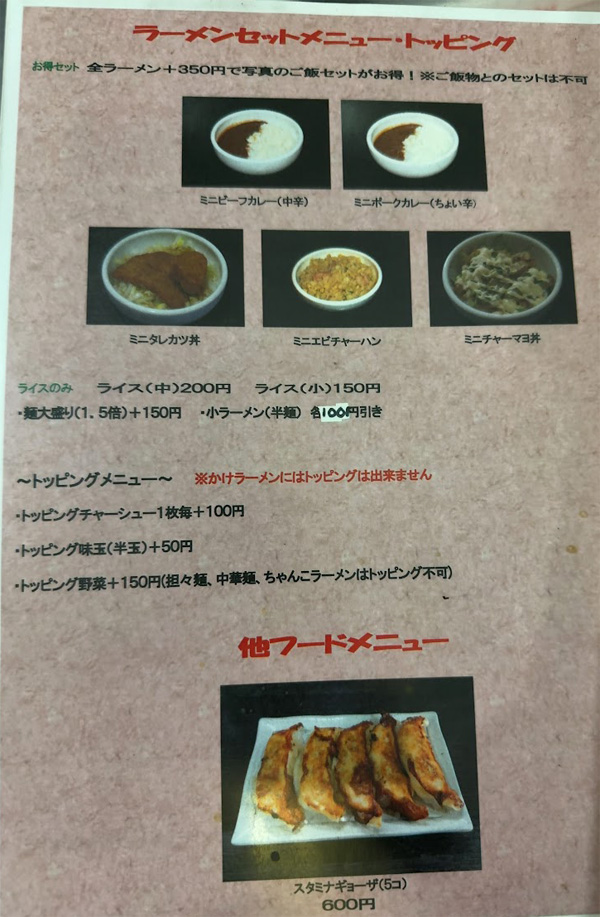 ラーメンセットメニュー・トッピング
お得セット 全ラーメン＋350円で写真のご飯セットがお得！※ご飯物とのセットは不可
ミニビーフカレー（中辛） ミニポークカレー（ちょい辛）
ミニタレカツ丼 ミニエビチャーハン ミニチャーマヨ丼
ライスのみ ライス（中）200円 ライス（小）150円
・麺大盛り（1．5倍）＋150円 ・小ラーメン（半麺） 各100円引き
～トッピングメニュー～ ※かけラーメンにはトッピングは出来ません
・トッピングチャーシュー1枚毎＋100円
・トッピング味玉（半玉）＋50円
・トッピング野菜＋150円(担々麺、中華麺、ちゃんこラーメンはトッピング不可)
他フードメニュー
スタミナギョーザ（5コ）
600円